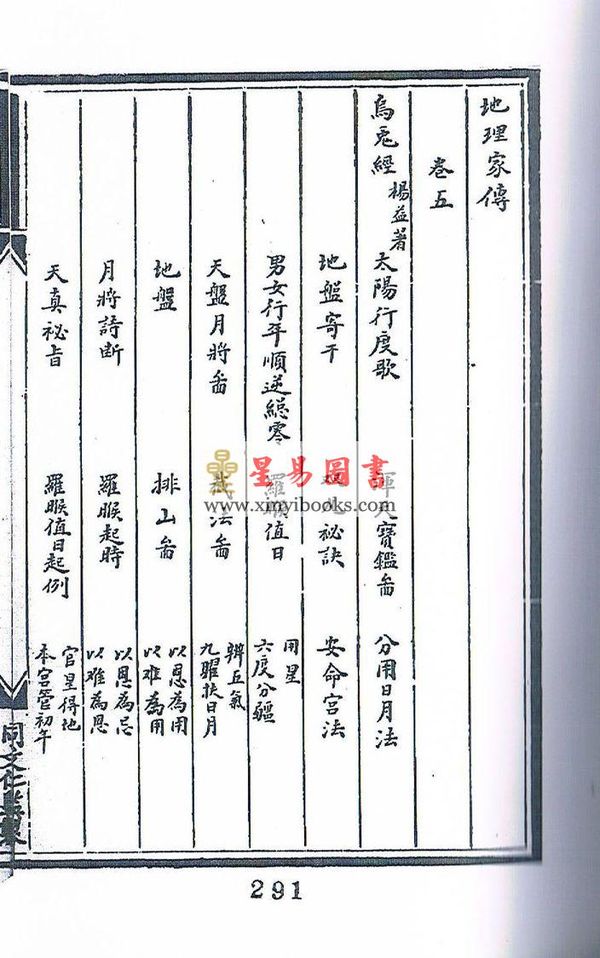 地理家傳
卷五
烏兎經 楊益著 太陽行度歌 寶鑑啚 分用日月法
地盤寄干 秘訣 安命宮法
男女行年順逆總零 羅睺值日 用星 六度分疆
天盤月將啚 法啚 辨五氣 九曜扶日月
地盤 排山啚 以恩為用 以难為用
月將詩断 羅睺起時 以恩為忌 以难為恩
天真祕旨 羅睺值日起例 官星得地 本宮管初年
星易圖書
www.xinyibooks.com
291